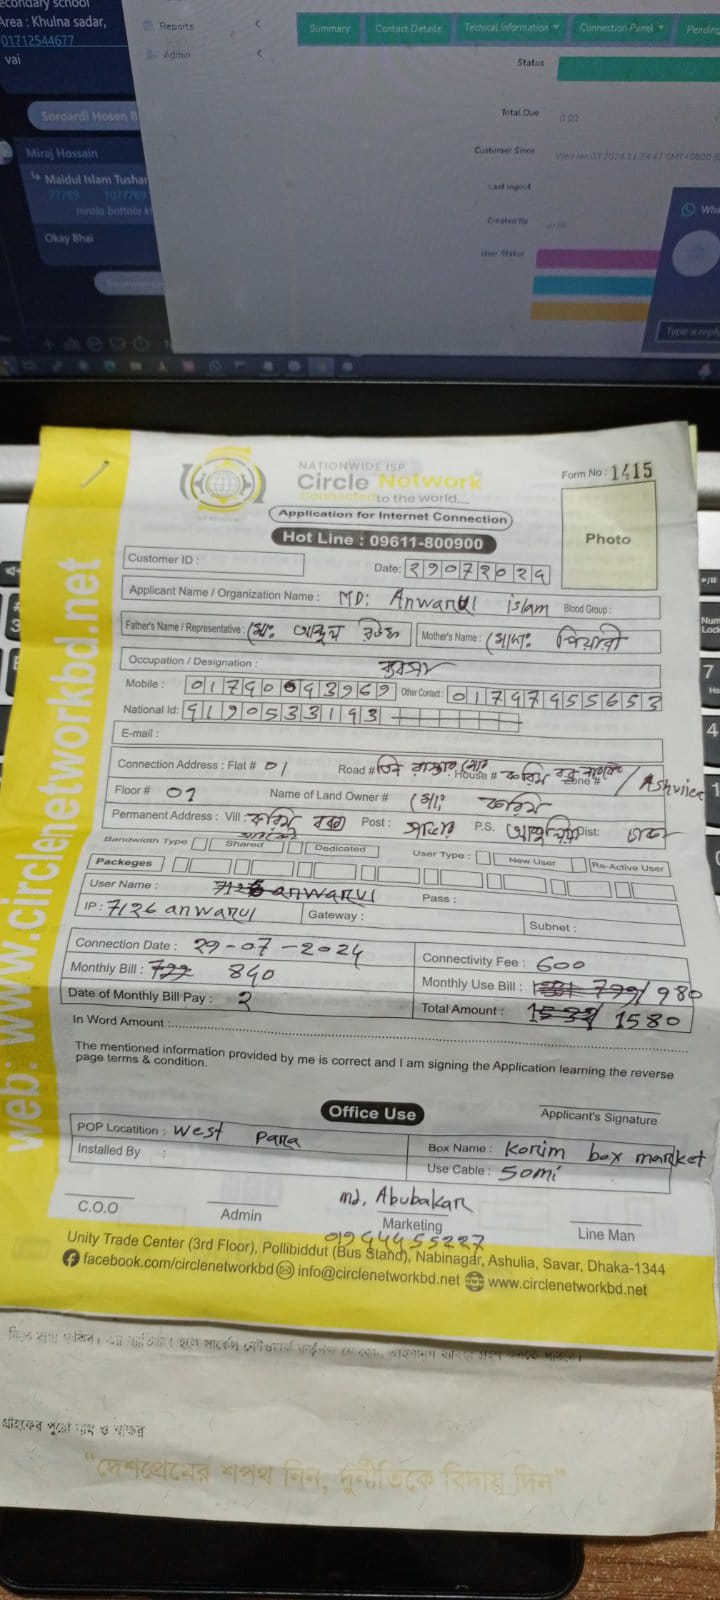 econdary school
Area : Khulna sadar,
01712544677
vai
Soroardi Hosen B
Miraj Hossain
Maidul Islam Tushar
77769 1077769
nirala bottola k
Okay Bhai
Reports
Admin
Summary Contact Details Techical Information Connection Panel Pending
Status
Total Due 0.00
Customer Since Wed Jan 03 2024 11:34:47 GMT+0600
Last logout
Created By
User Status
Wha
Type a reply
NATIONWIDE ISP
Circle Network
Connected to the world....
Application for Internet Connection
Hot Line : 09611-800900
Form No : 1415
Photo
Customer ID :
Date: 29072024
Applicant Name / Organization Name : MD: Anwarul islam Blood Group :
Father's Name / Representative : মোঃ Mother's Name : মোসাঃ পিয়ারী
Occupation / Designation :
Mobile : 01790693969 Other Contact : 01797455653
National Id: 9190533193
E-mail :
Connection Address : Flat # 01 Road # তিন রাস্তার মোড় House # করিম Zone # / Ashulia
Floor # 01 Name of Land Owner # মোঃ করিম
Permanent Address : Vill : করিম Post : সাভার P.S. আশুলিয়া Dist: ঢাকা
Bandwidth Type Shared Dedicated User Type : New User Re-Active User
Packeges
User Name : 7126 anwarul Pass :
IP : 7126 anwarul Gateway : Subnet :
Connection Date : 29-07-2024 Connectivity Fee : 600
Monthly Bill : 722 840 Monthly Use Bill : 799/ 980
Date of Monthly Bill Pay : 2 Total Amount : 1580
In Word Amount :
The mentioned information provided by me is correct and I am signing the Application learning the reverse
page terms & condition.
Applicant's Signature
Office Use
POP Locatition : West Para Box Name : Korim box market
Installed By : Use Cable : 50mi
C.O.O Admin md. Abubakar Marketing Line Man
01944455227
Unity Trade Center (3rd Floor), Pollibiddut (Bus Stand), Nabinagar, Ashulia, Savar, Dhaka-1344
facebook.com/circlenetworkbd info@circlenetworkbd.net www.circlenetworkbd.net
web: www.circlenetworkbd.net
গ্রাহকের পুরো নাম ও স্বাক্ষর
"দেশপ্রেমের শপথ নিন, দুর্নীতিকে বিদায় দিন"